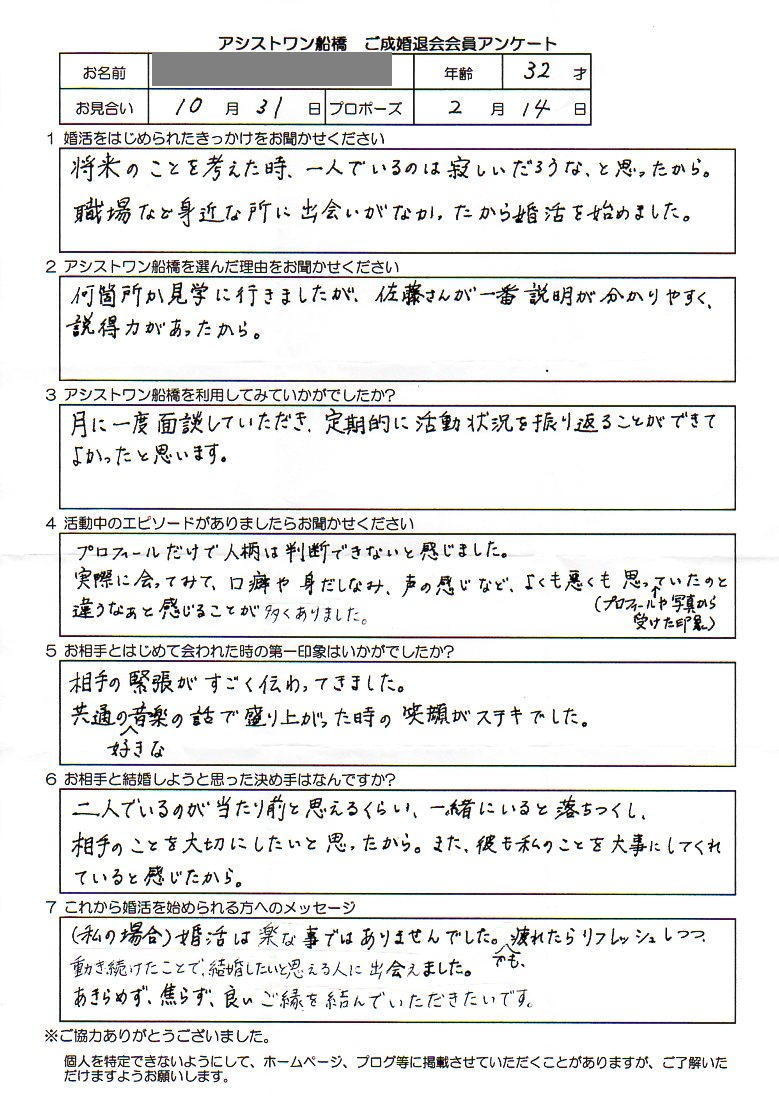 アシストワン船橋　ご成婚退会会員アンケート
お名前　年齢　32 才
お見合い　10 月 31 日　プロポーズ　2 月 14 日
1 婚活をはじめられたきっかけをお聞かせください
将来のことを考えた時、一人でいるのは寂しいだろうな、と思ったから。
職場など身近な所に出会いがなかったから婚活を始めました。
2 アシストワン船橋を選んだ理由をお聞かせください
何箇所か見学に行きましたが、佐藤さんが一番説明が分かりやすく、
説得力があったから。
3 アシストワン船橋を利用してみていかがでしたか?
月に一度面談していただき、定期的に活動状況を振り返ることができて
よかったと思います。
4 活動中のエピソードがありましたらお聞かせください
プロフィールだけで人柄は判断できないと感じました。
実際に会ってみて、口癖や身だしなみ、声の感じなど、よくも悪くも思っていたのと
(プロフィールや写真から
違うなぁと感じることが多くありました。
受けた印象)
5 お相手とはじめて会われた時の第一印象はいかがでしたか?
相手の緊張がすごく伝わってきました。
共通の音楽の話で盛り上がった時の笑顔がステキでした。
好きな
6 お相手と結婚しようと思った決め手はなんですか?
二人でいるのが当たり前と思えるくらい、一緒にいると落ちつくし、
相手のことを大切にしたいと思ったから。また、彼も私のことを大事にしてくれ
ていると感じたから。
7 これから婚活を始められる方へのメッセージ
(私の場合)婚活は楽な事ではありませんでした。疲れたらリフレッシュしつつ、
でも、
動き続けたことで、結婚したいと思える人に出会えました。
あきらめず、焦らず、良いご縁を結んでいただきたいです。
※ご協力ありがとうございました。
個人を特定できないようにして、ホームページ、ブログ等に掲載させていただくことがありますが、ご了解いた
だけますようお願いします。